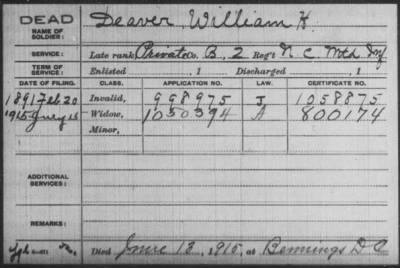 DEAD
NAME OF SOLDIER: Deaver, William H.
SERVICE: Late rank, Private Co. B, 2 Reg't N. C. Mtd Inf
TERM OF SERVICE: Enlisted , 1 Discharged , 1
DATE OF FILING. CLASS. APPLICATION NO. LAW. CERTIFICATE NO.
1891 Feb 20 Invalid, 998975 J 1058875
1915 July Widow, 1050594 A 800174
Minor,
ADDITIONAL SERVICES:
REMARKS:
Died June 13, 1915, at Bennings D C